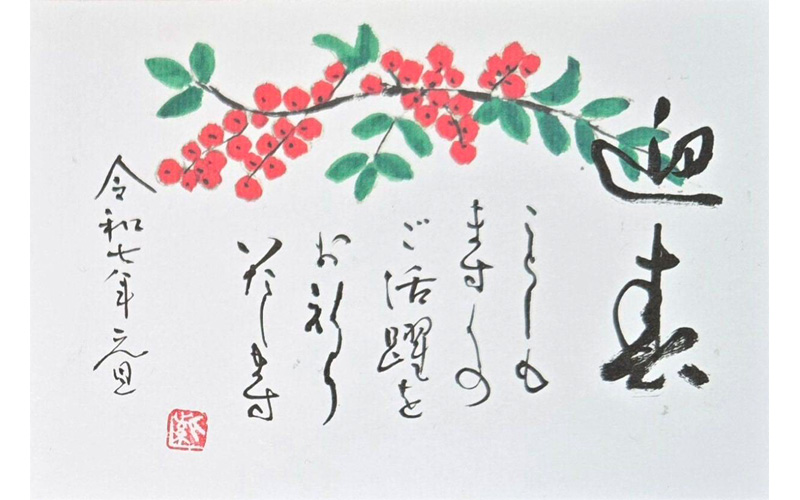 迎春
ことしも
ますますの
ご活躍を
お祈り
いたします
令和七年 元旦